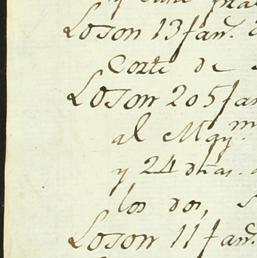 y
Loson 13 fan.
Corte de
Loson 205 fan
al Maym.
y 24 dhas.
los dos, s
Loson 11 fan.